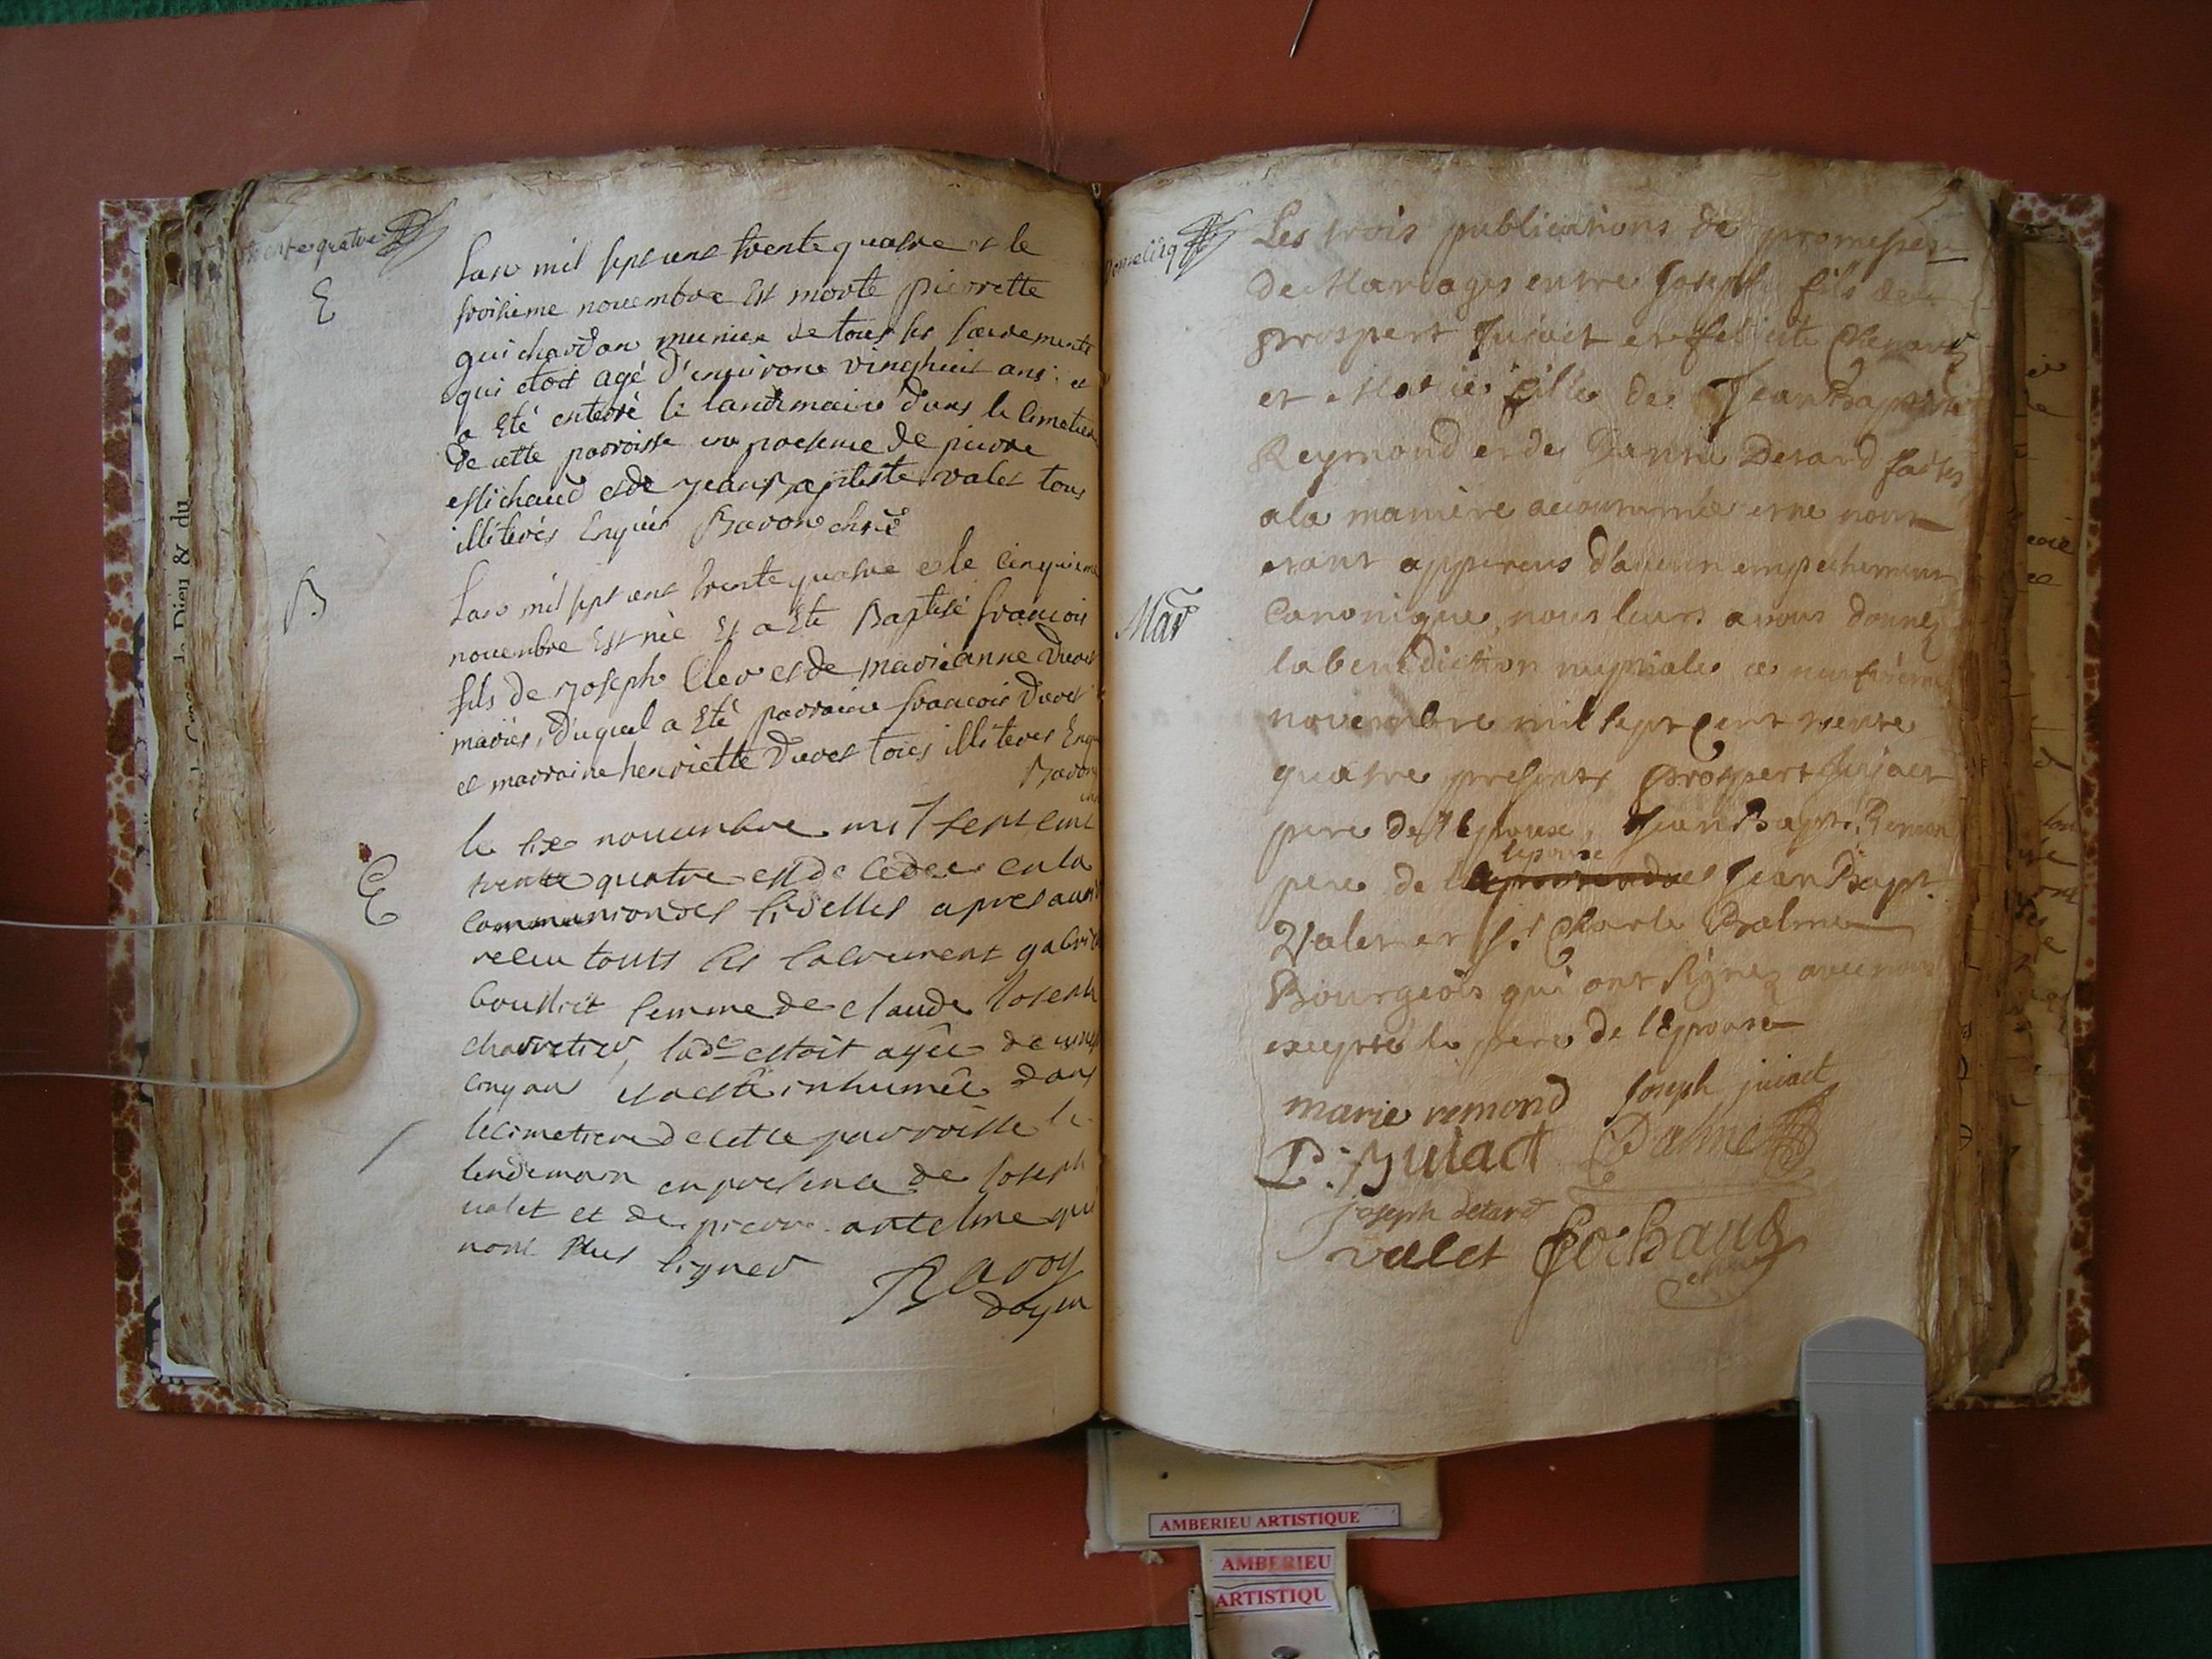 trente quatre
E
Lan mil sept cent trente quatre et le
troisieme nouembre est morte pierrette
guichardon munie de tous les sacrements
qui etoit agé d'environ vinghuit ans et
a eté enterré le landemain dans le cimetiere
de cette parroisse en presence de pierre
Michaud et de jean baptiste valet tous
illiterés enquis Bavoz
B
Lan mil sept cent trente quatre et le cinquieme
nouembre est né et a eté Baptisé francois
fils de joseph Cler et de marieanne
mariés, duquel a eté parrain francois
et marraine henriette tous illiteres
le six nouembre mil sept cent
E
trente quatre est decedee en la
communion des fidelles apres auoir
receu touts les sacrement
femme de claude Joseph
charretier, lad.e estoit agée de
cinq ans et a esté inhumée dans
le cimetiere de cette parroisse le
lendemain en presence de Joseph
valet et de pierre antelme qui
nont sceu signer
doyen
Les trois publications de promesses
de Mariages entre Joseph fils de
prospert Jujact et
et Marie fille de Jean Baptiste
Reymond et de Detard faites
a la maniere accoutumée et ne nous
etant apparus d'aucun empechement
Mar
canonique, nous leurs avons donnez
la benediction nuptiale ce
novembre mil sept cent trente
quatre presents prospert Jujact
pere de l'Epoux, Jean Bapt.
lepouse
pere de Jean Bapt.
Valet et S.r Charle Balme
Bourgeois qui ont signez avec nous
excepté le pere de l'Epouse
marie remond Joseph jujact
P. Jujact Balme
joseph detard
valet Cochand
AMBERIEU ARTISTIQUE
AMBERIEU
ARTISTIQU